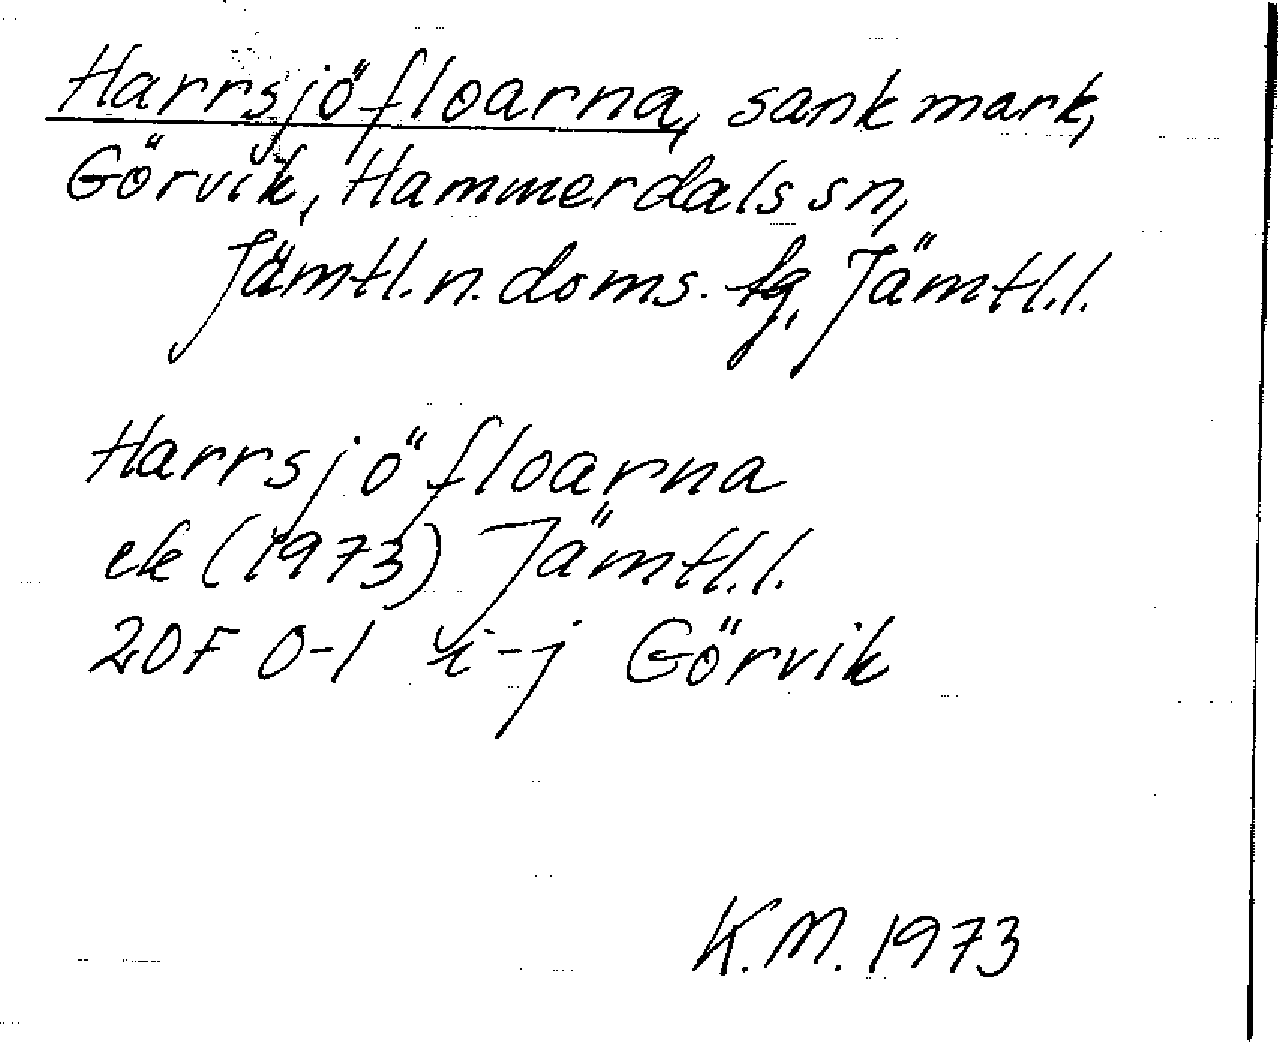 Harrsjöfloarna, sank mark,
Görvik, Hammerdals sn,
Jämtl. n. doms. fg, Jämtl. l.
Harrsjöfloarna
ek (1973) Jämtl. l.
20F 0-1 i-j Görvik
K.M. 1973